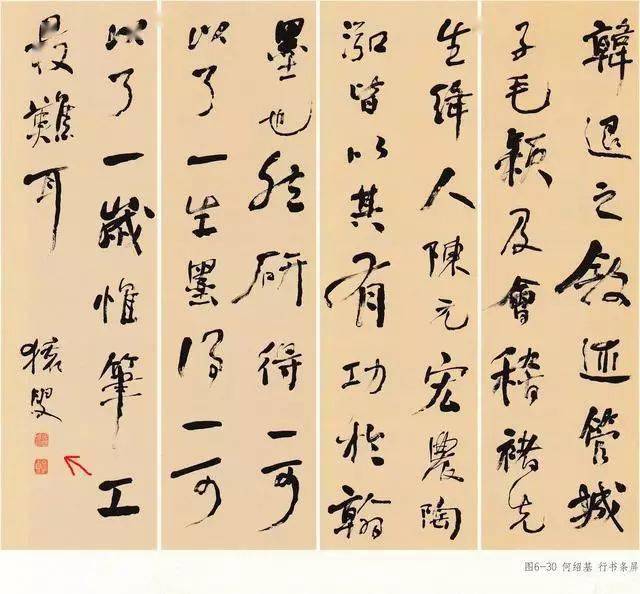 韓退之敘述管城
子毛穎及會稽褚先
生絳人陳元宏農陶
泓皆以其有功於翰
墨也然研得一可
以了一生墨得一可
以了一歲惟筆工
最難耳
猨叟
图6-30 何绍基 行书条屏